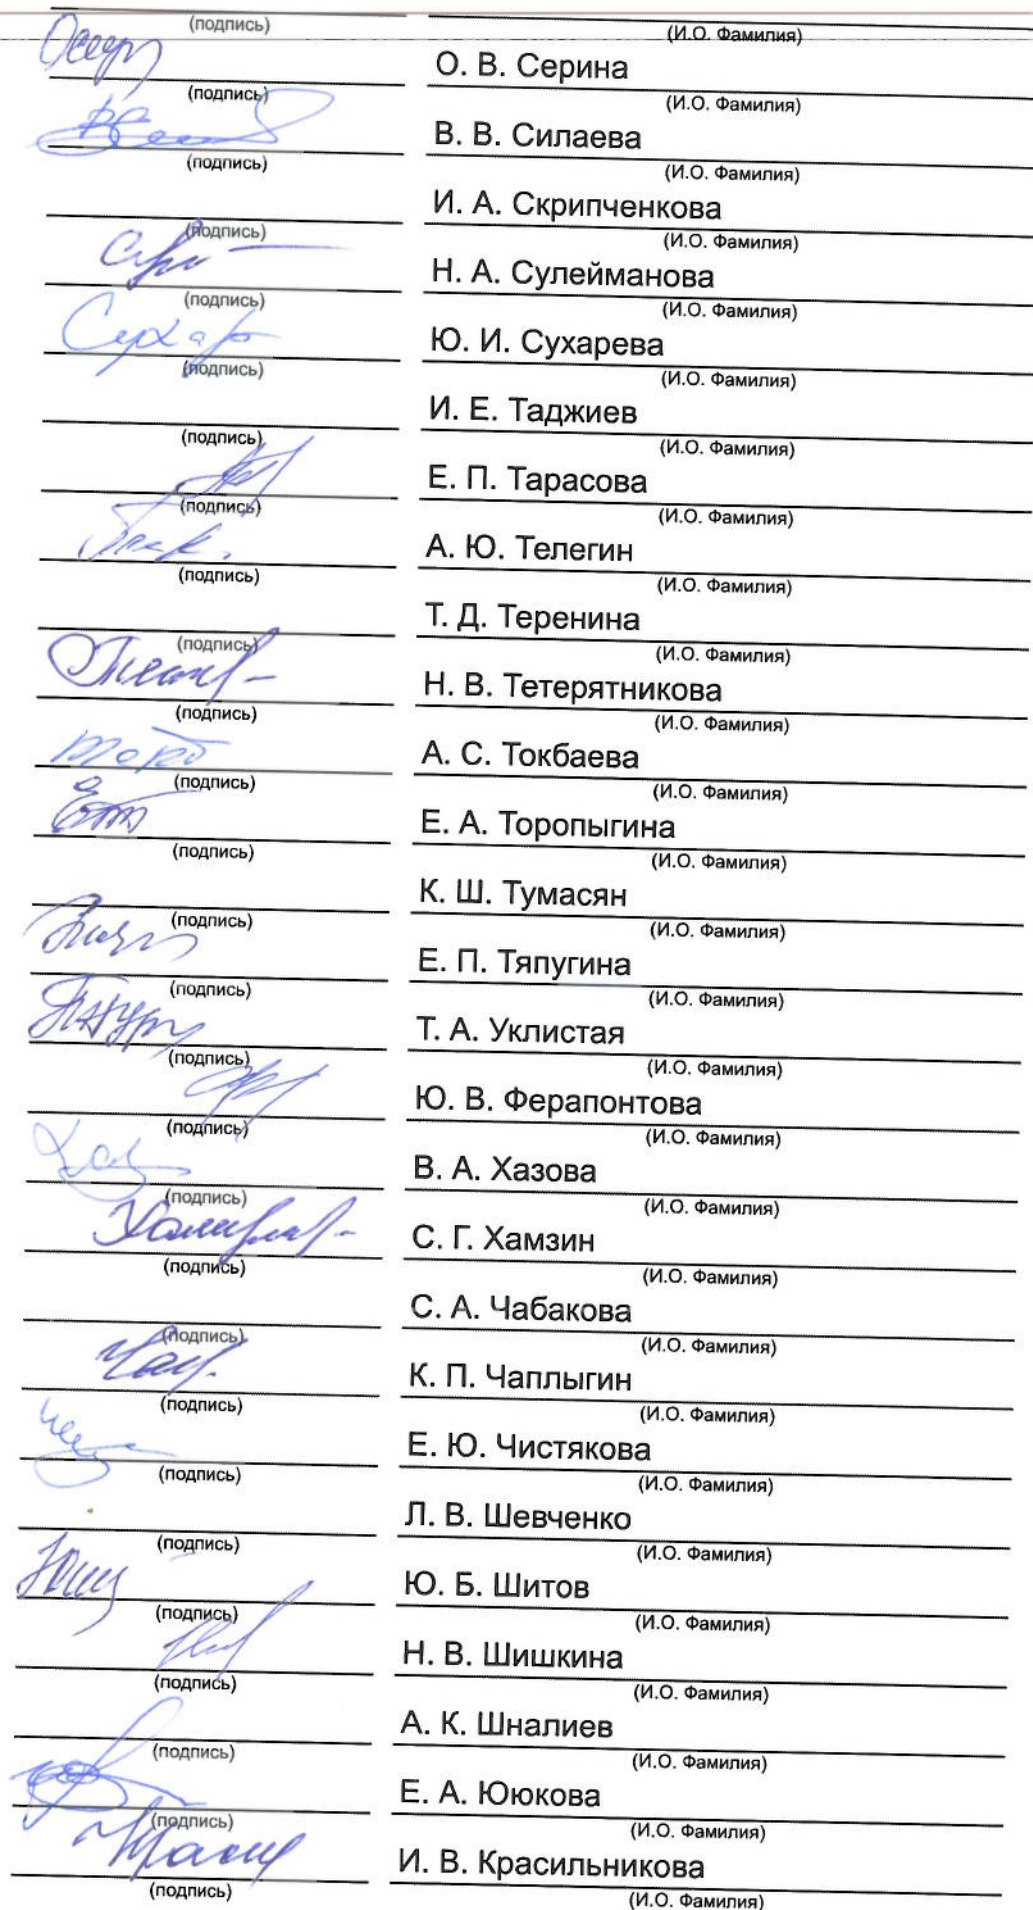 (подпись) (И.О. Фамилия)
О. В. Серина
(подпись) (И.О. Фамилия)
В. В. Силаева
(подпись) (И.О. Фамилия)
И. А. Скрипченкова
(подпись) (И.О. Фамилия)
Н. А. Сулейманова
(подпись) (И.О. Фамилия)
Сухар Ю. И. Сухарева
(подпись) (И.О. Фамилия)
И. Е. Таджиев
(подпись) (И.О. Фамилия)
Е. П. Тарасова
(подпись) (И.О. Фамилия)
А. Ю. Телегин
(подпись) (И.О. Фамилия)
Т. Д. Теренина
(подпись) (И.О. Фамилия)
Н. В. Тетерятникова
(подпись) (И.О. Фамилия)
А. С. Токбаева
(подпись) (И.О. Фамилия)
Е. А. Торопыгина
(подпись) (И.О. Фамилия)
К. Ш. Тумасян
(подпись) (И.О. Фамилия)
Е. П. Тяпугина
(подпись) (И.О. Фамилия)
Т. А. Уклистая
(подпись) (И.О. Фамилия)
Ю. В. Ферапонтова
(подпись) (И.О. Фамилия)
В. А. Хазова
(подпись) (И.О. Фамилия)
С. Г. Хамзин
(подпись) (И.О. Фамилия)
С. А. Чабакова
(подпись) (И.О. Фамилия)
К. П. Чаплыгин
(подпись) (И.О. Фамилия)
Е. Ю. Чистякова
(подпись) (И.О. Фамилия)
Л. В. Шевченко
(подпись) (И.О. Фамилия)
Ю. Б. Шитов
(подпись) (И.О. Фамилия)
Н. В. Шишкина
(подпись) (И.О. Фамилия)
А. К. Шналиев
(подпись) (И.О. Фамилия)
Е. А. Ююкова
(подпись) (И.О. Фамилия)
И. В. Красильникова
(подпись) (И.О. Фамилия)